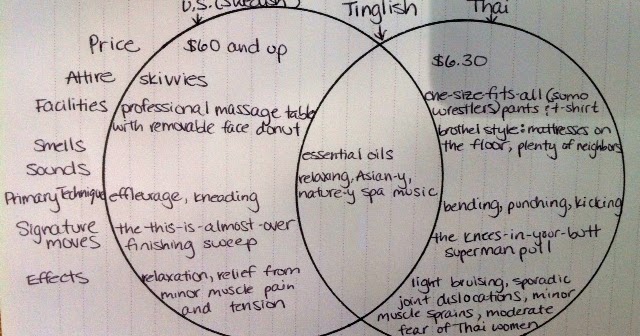 U.S. (Swedish)
Tinglish
Thai
Price
$60 and up
$6.30
Attire
skivvies
one-size-fits-all (sumo
wrestlers) pants & t-shirt
Facilities
professional massage table
with removable face donut
brothel style: mattresses on
the floor, plenty of neighbors
Smells
essential oils
Sounds
relaxing, Asian-y,
nature-y spa music
Primary Technique
effleurage, kneading
bending, punching, kicking
Signature
moves
the this-is-almost-over
finishing sweep
the knees-in-your-butt
superman pull
Effects
relaxation, relief from
minor muscle pain
and tension
light bruising, sporadic
joint dislocations, minor
muscle sprains, moderate
fear of Thai women